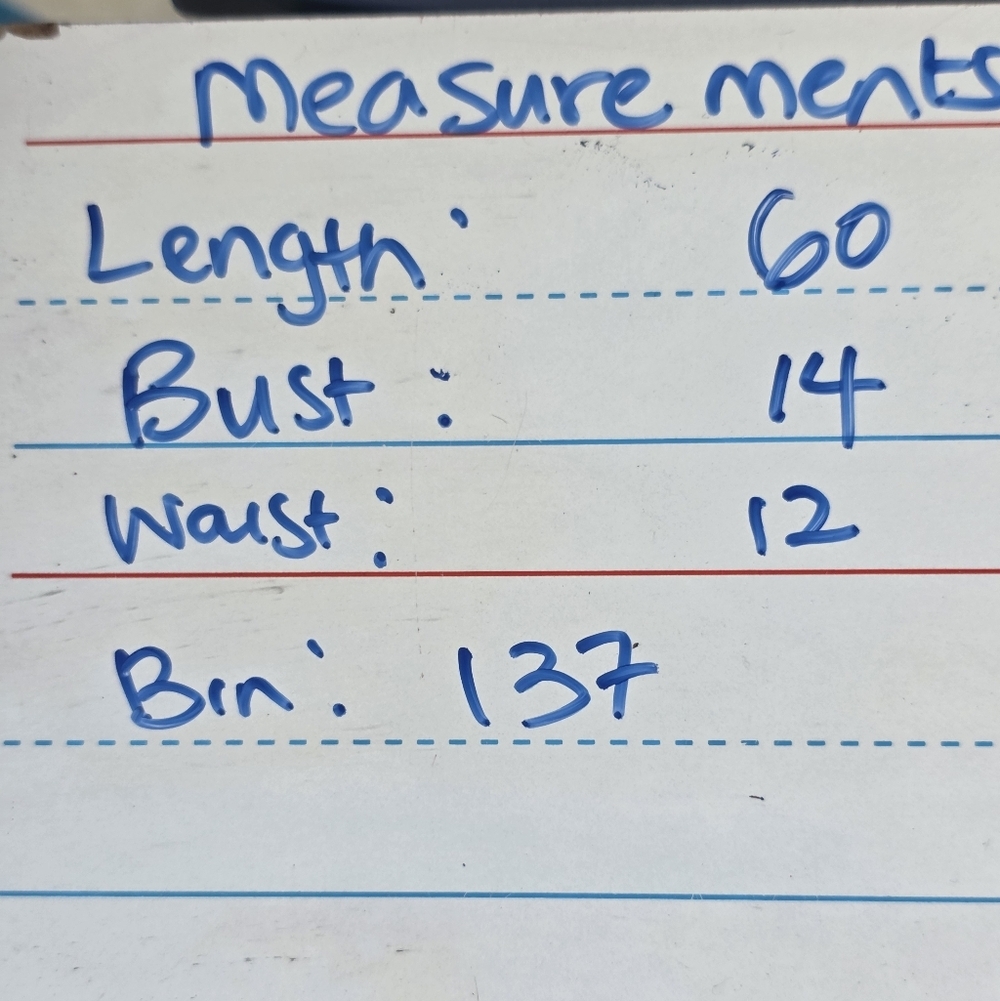 Measurements
Length: 60
Bust: 14
Waist: 12
Bin: 137